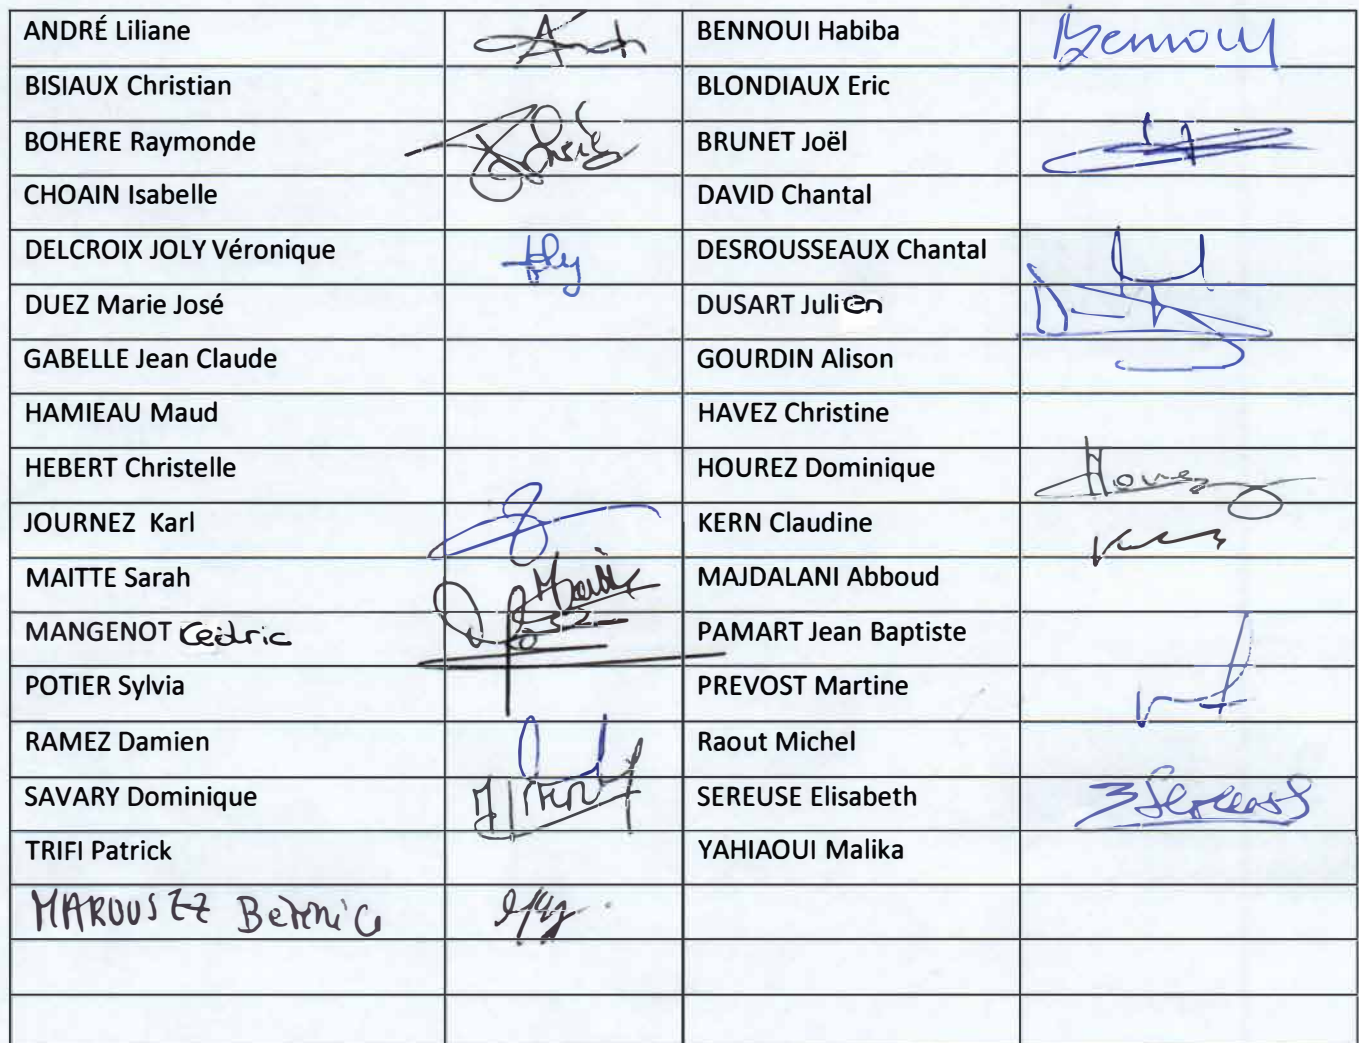 ANDRÉ Liliane BENNOUI Habiba Bennoui
BISIAUX Christian BLONDIAUX Eric
BOHERE Raymonde BRUNET Joël
CHOAIN Isabelle DAVID Chantal
DELCROIX JOLY Véronique Joly DESROUSSEAUX Chantal
DUEZ Marie José DUSART Julien
GABELLE Jean Claude GOURDIN Alison
HAMIEAU Maud HAVEZ Christine
HEBERT Christelle HOUREZ Dominique Hourez
JOURNEZ Karl KERN Claudine
MAITTE Sarah MAJDALANI Abboud
MANGENOT Cédric PAMART Jean Baptiste
POTIER Sylvia PREVOST Martine
RAMEZ Damien Raout Michel
SAVARY Dominique SEREUSE Elisabeth
TRIFI Patrick YAHIAOUI Malika